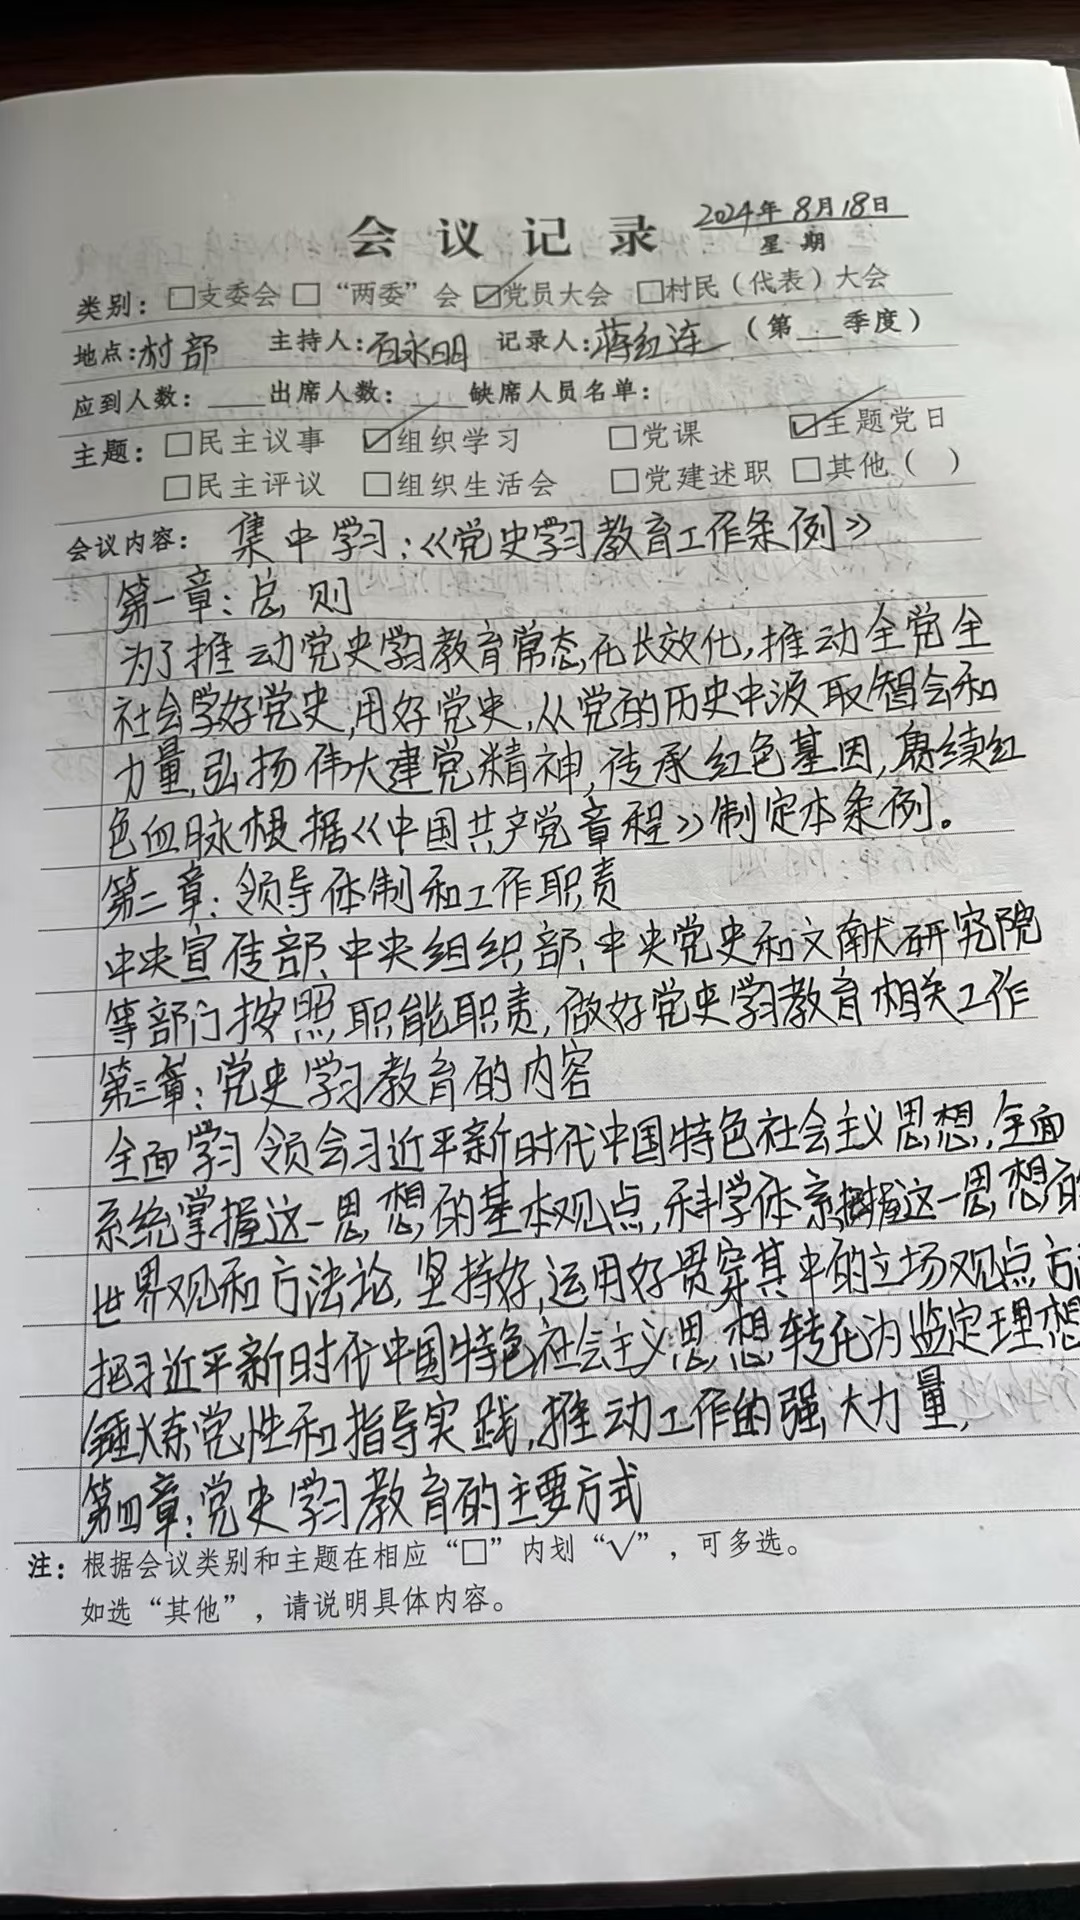 会议记录 2024年8月18日
星期
类别：□支委会 □“两委”会 ☑党员大会 □村民（代表）大会
地点：村部 主持人：石永明 记录人：蒋红连 （第__季度）
应到人数：____出席人数：____缺席人员名单：
主题：□民主议事 ☑组织学习 □党课 ☑主题党日
□民主评议 □组织生活会 □党建述职 □其他（ ）
会议内容： 集中学习：《党史学习教育工作条例》
第一章：总则
为了推动党史学习教育常态化长效化，推动全党全
社会学好党史，用好党史，从党的历史中汲取智会和
力量，弘扬伟大建党精神，传承红色基因，赓续红
色血脉根据《中国共产党章程》制定本条例。
第二章：领导体制和工作职责
中央宣传部、中央组织部、中央党史和文献研究院
等部门按照职能职责，做好党史学习教育相关工作
第三章：党史学习教育的内容
全面学习领会习近平新时代中国特色社会主义思想，全面
系统掌握这一思想的基本观点，科学体系，把握这一思想的
世界观和方法论，坚持好，运用好贯穿其中的立场观点方法
把习近平新时代中国特色社会主义思想转化为监定理想
锤炼党性和指导实践，推动工作的强大力量，
第四章：党史学习教育的主要方式
注：根据会议类别和主题在相应“□”内划“√”，可多选。
如选“其他”，请说明具体内容。